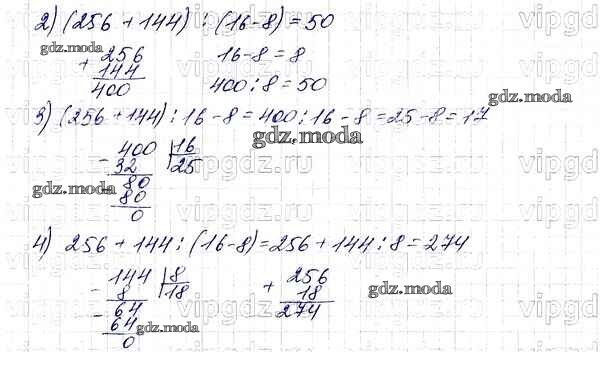 2) (256 + 144) : (16-8) = 50
+ 256 16-8 = 8
144 400 : 8 = 50
400
3) (256 + 144) : 16 - 8 = 400 : 16 - 8 = 25 - 8 = 17
- 400 | 16
32 25
- 80
80
0
4) 256 + 144 : (16-8) = 256 + 144 : 8 = 274
- 144 | 8 + 256
8 18 18
- 64 274
64
0
gdz.moda
gdz.moda
gdz.moda
gdz.moda
gdz.moda
gdz.moda
vipgdz.ru